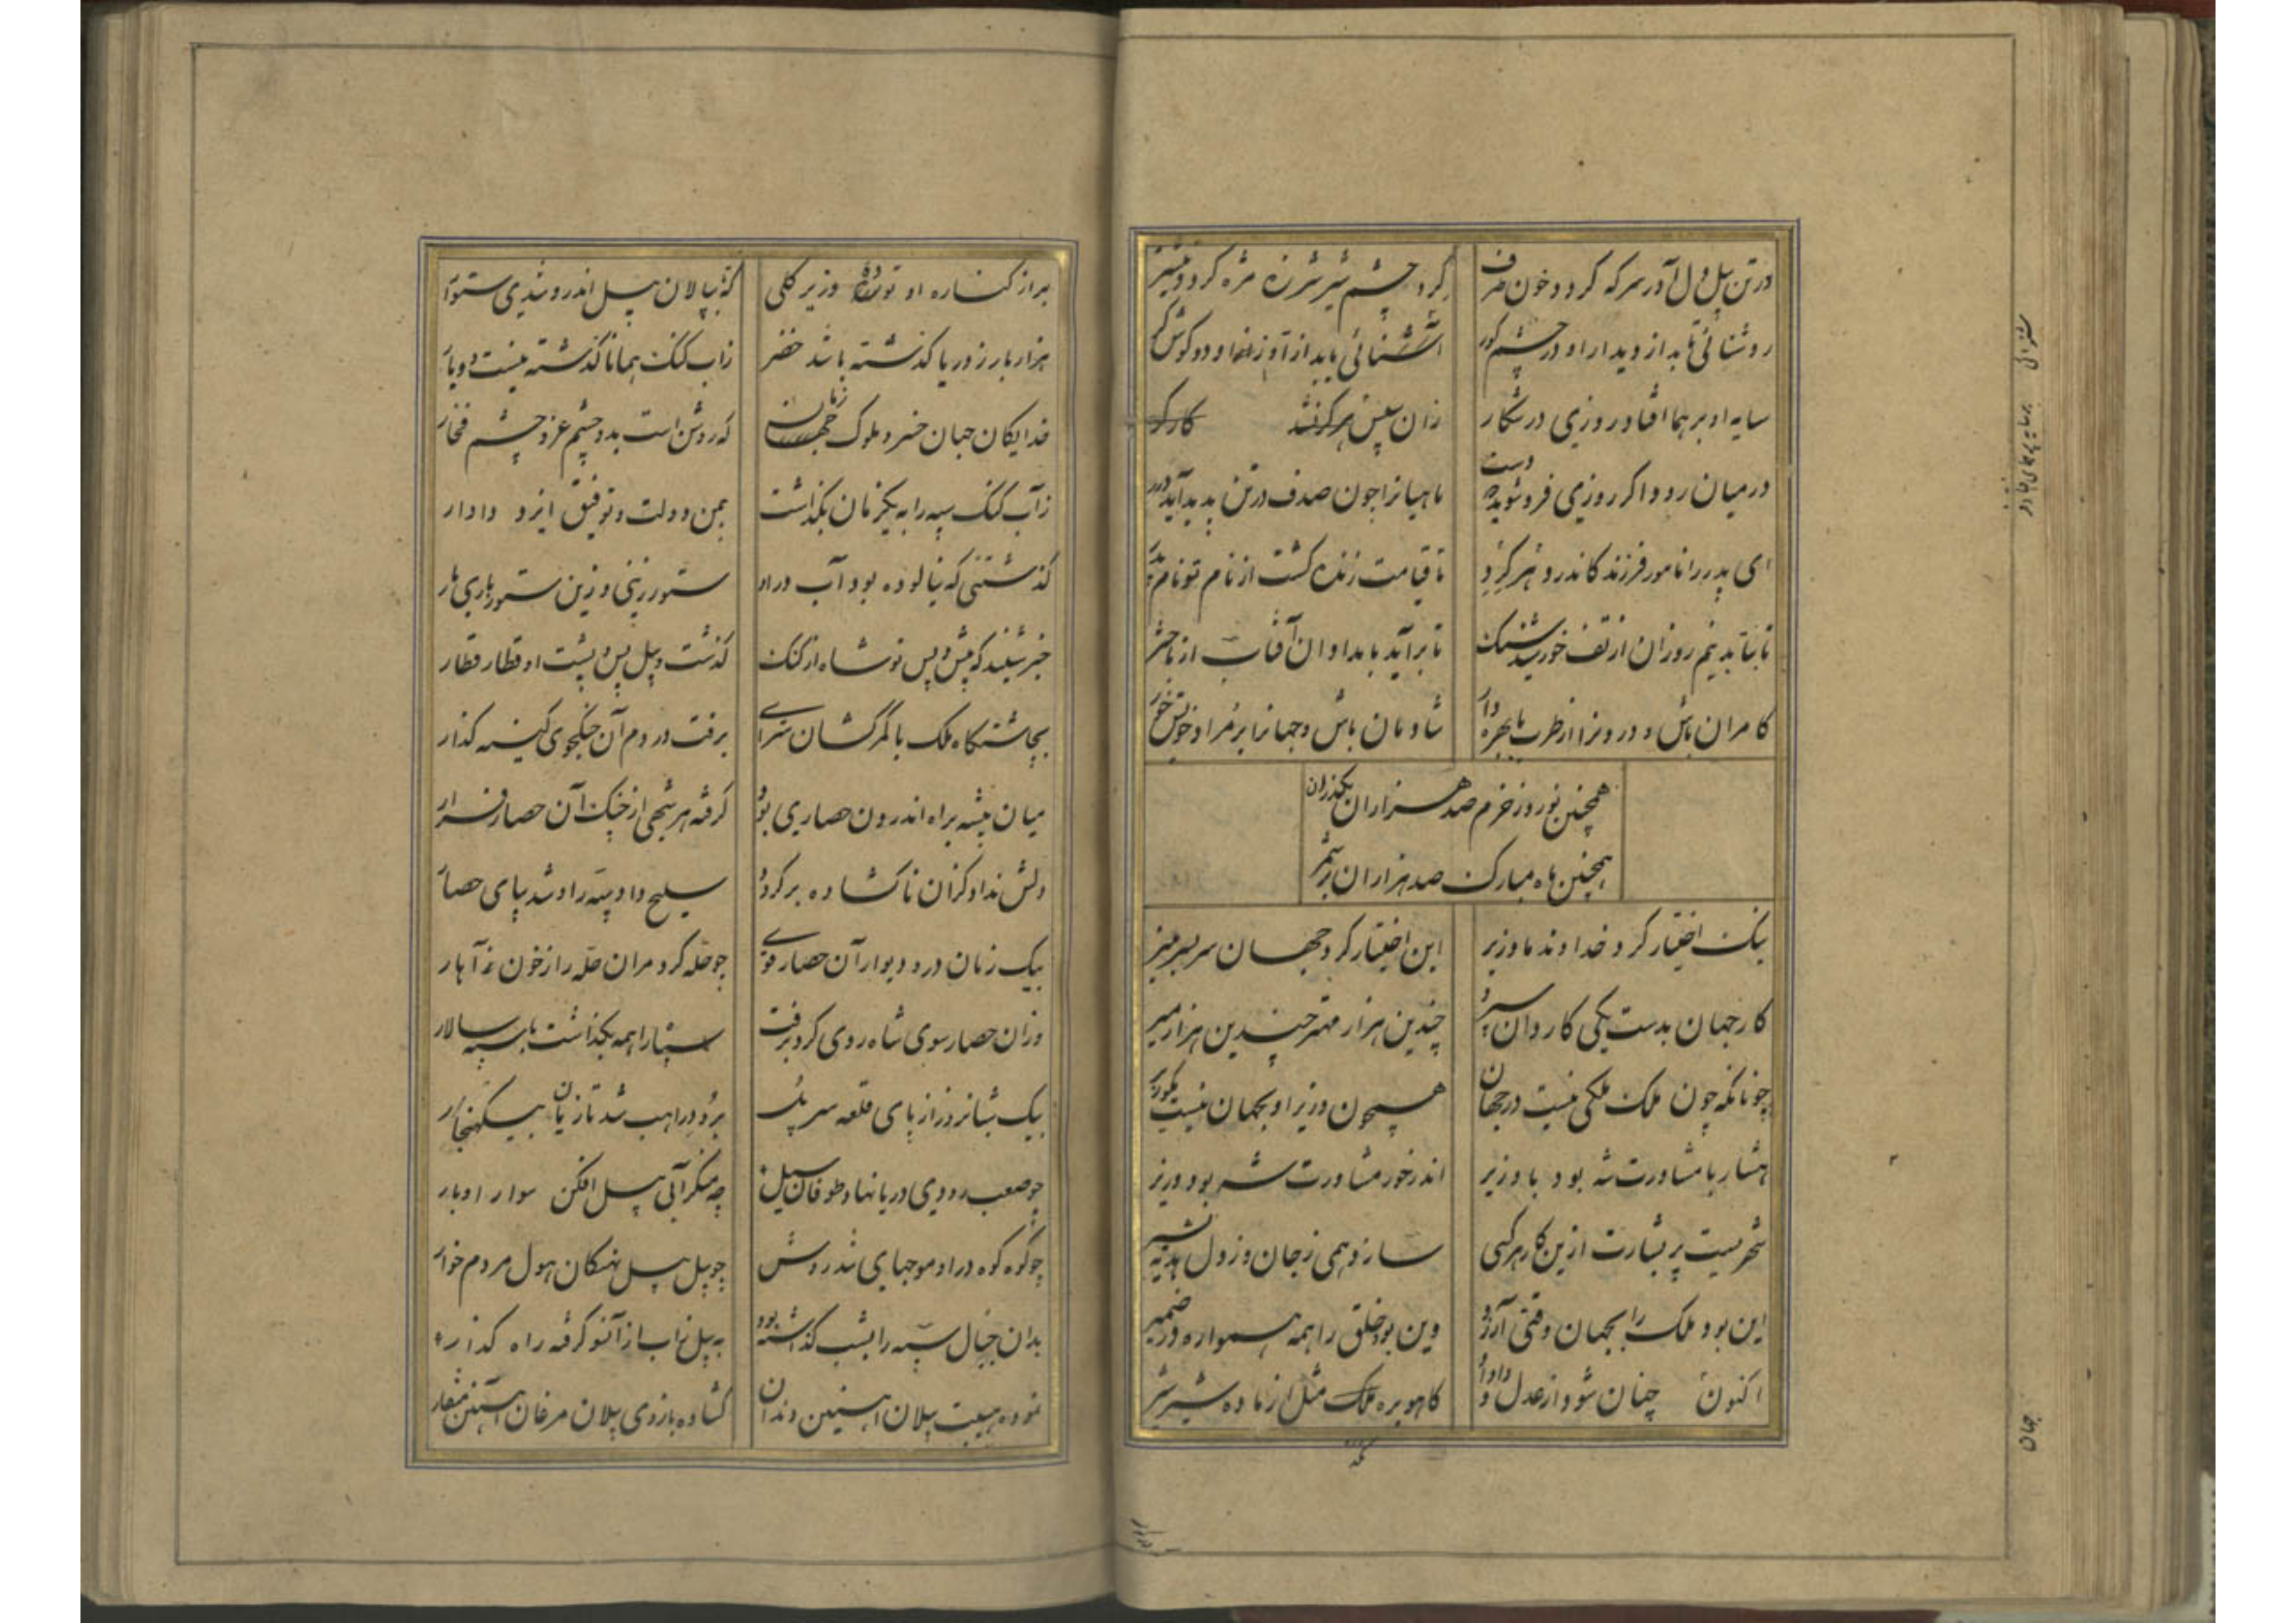 در تن پیل دل آور سر که کرد و خون صرف کرد و چشم شیر شرزه مژه کرد و نیشتر
روشنائی تابد از دیدار او در چشم کور آشنائی یابد از آواز او دو گوش کر
سایه او بر هما افتاد روزی در شکار زان سپس
در میان رود اگر روزی فرو شوید دست ماهیانرا چون صدف در تن پدید آید درر
ای پدر را نامور فرزند کاندر تا قیامت زنده گشت از نام تو نام پدر
تا بتابد نیم روزان از تف خورشید سنگ تا برآید بامدادان آفتاب از باختر
کامران باش و در ونرا از طرب با بهره دار شادمان باش و جهانرا بر مراد خویش خور
همچنین نوروز خرم صد هزاران بگذران
همچنین ماه مبارک صد هزاران بر شمر
نیک اختیار کرد خداوند ما وزیر این اختیار کرد جهان سر بسر منیر
کار جهان بدست یکی کاردان سپرد چندین هزار مهتر چندین هزار میر
چونانکه چون ملک ملکی نیست در جهان همچون وزیر او بجهان نیست
با مشاورت شه بود با وزیر اندر خور مشاورت شه بود وزیر
شهریست پر بشارت ازین کار هر کسی سازد همی ز جان و ز دل هدیه بشیر
این بود ملک را بجهان وقتی آرزو وین بود خلق را همه همواره در ضمیر
اکنون چنان شود از عدل و داد او کاهو بره ملک مثل از ماده شیر شیر
براز کناره او وزیر گلی که پیل اندرو شدی
هزار بار ز دریا گذشته باشد خضر ز آب گنگ همانا گذشته نیست دو بار
خدایگان جهان خسرو ملوک زمان که روشن است بدو چشم عز و چشم فخار
ز آب گنگ سپه را به یکزمان بگذاشت بیمن دولت و توفیق ایزد دادار
گذشتنی که نیالوده بود آب در او ستور زینی و زین ستور باری بار
خبر شنید که پیش و پس تو شاه از گنگ گذشت و پیل پس پشت او قطار قطار
بچاشتگاه ملک با کمرکشان سرای برفت در دم آن جنگجوی کینه گذار
میان بیشه براه اندرون حصاری بود گرفته هر شجی از جنگ آن حصار فرار
دلش نداد کزان ناگشاده برگردد سلیح داد و سپه را دو شد بپای حصار
بیک زمان در و دیوار آن حصار قوی چو حله کرد مران حله را ز خون زد آهار
وزان حصار سوی شاه روی کرد و برفت سپاه را همه بگذاشت با سپه سالار
بیک شبانروز از پای قلعه سر برود راهب شد تازیان بیک هنجار
چو صعب رودی دریا نهاد و طوفان سیل چه منکر آبی پیل افکن سوار اوبار
چو کوه کوه در او موجهای تند روش چو پیل پیل نهنگان هول مردم خوار
بدان جیپال سپه را بشب گذاشته بود به پیل از آب از آنسو گرفته راه گذار
نموده هیبت پیلان آهنین دندان گشاده بازوی پیلان مرغان آهنین منقار
جهان